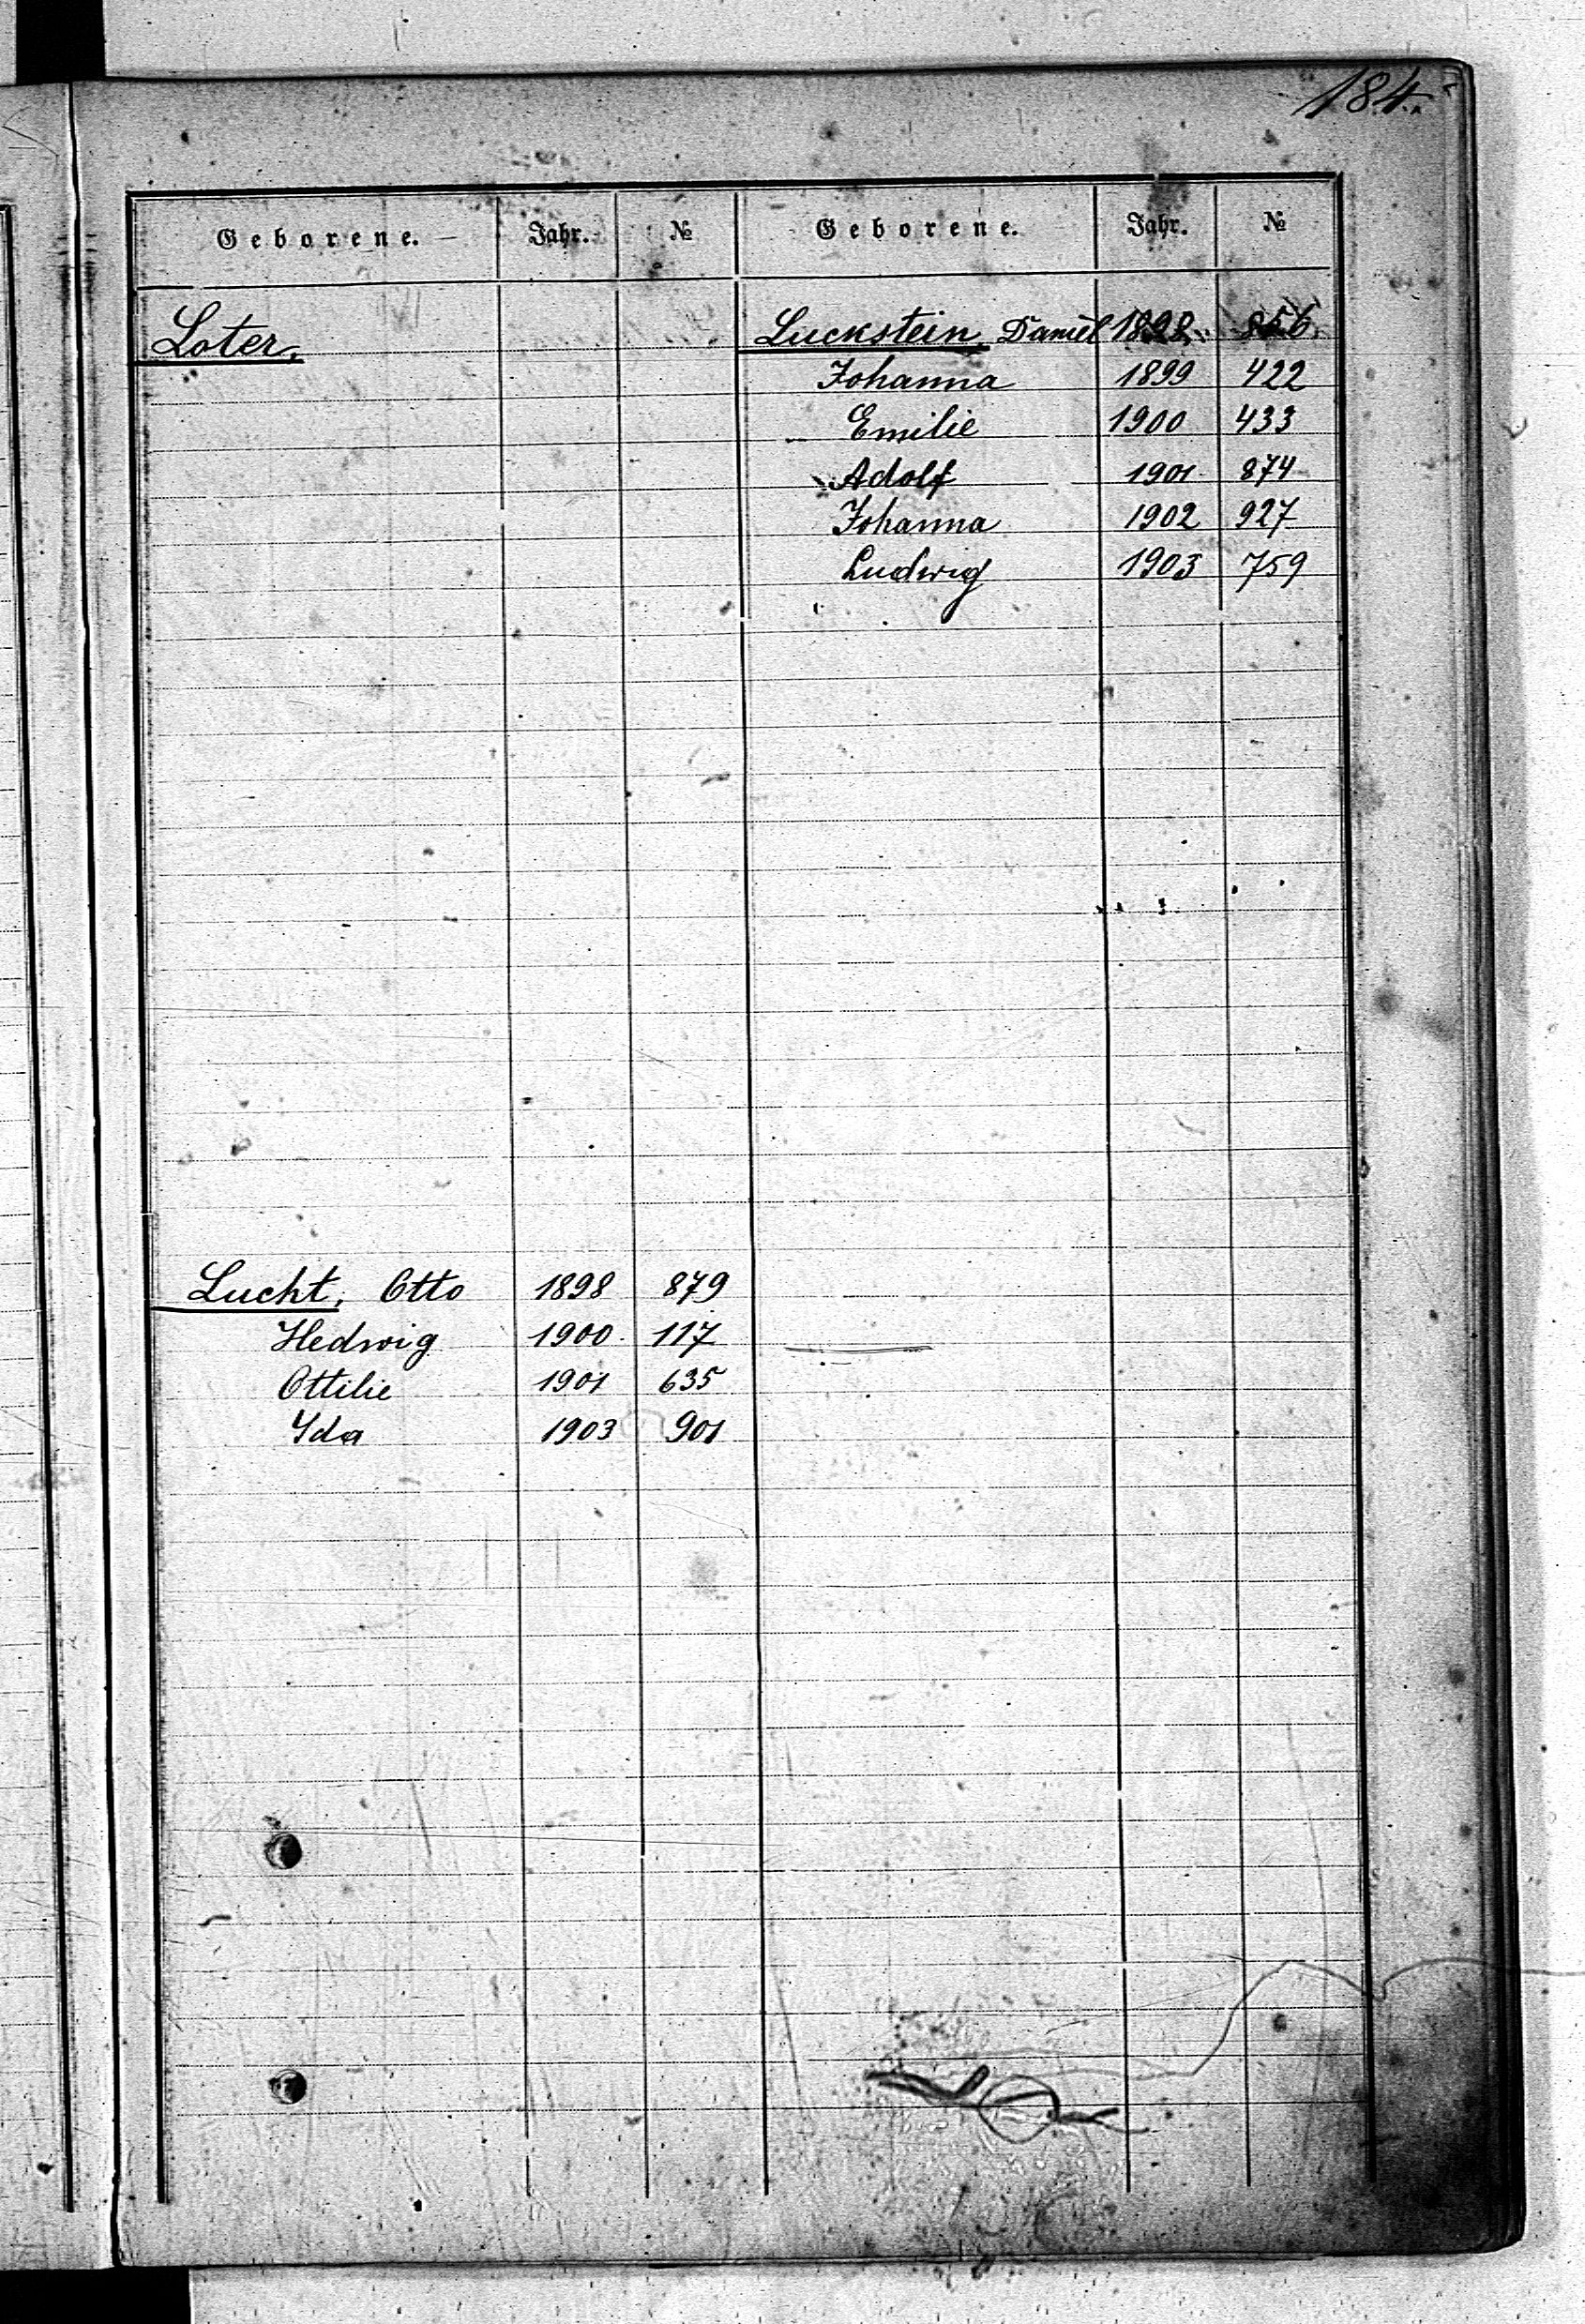 184.
Geborene. Jahr. №
Loter.
Lucht, Otto 1898 879
Hedwig 1900 117
Ottilie 1901 635
Ida 1903 901
Geborene. Jahr. №
Luckstein, Daniel 1898. 856.
Johanna 1899 422
Emilie 1900 433
Adolf 1901 874
Johanna 1902 927
Ludwig 1903 759